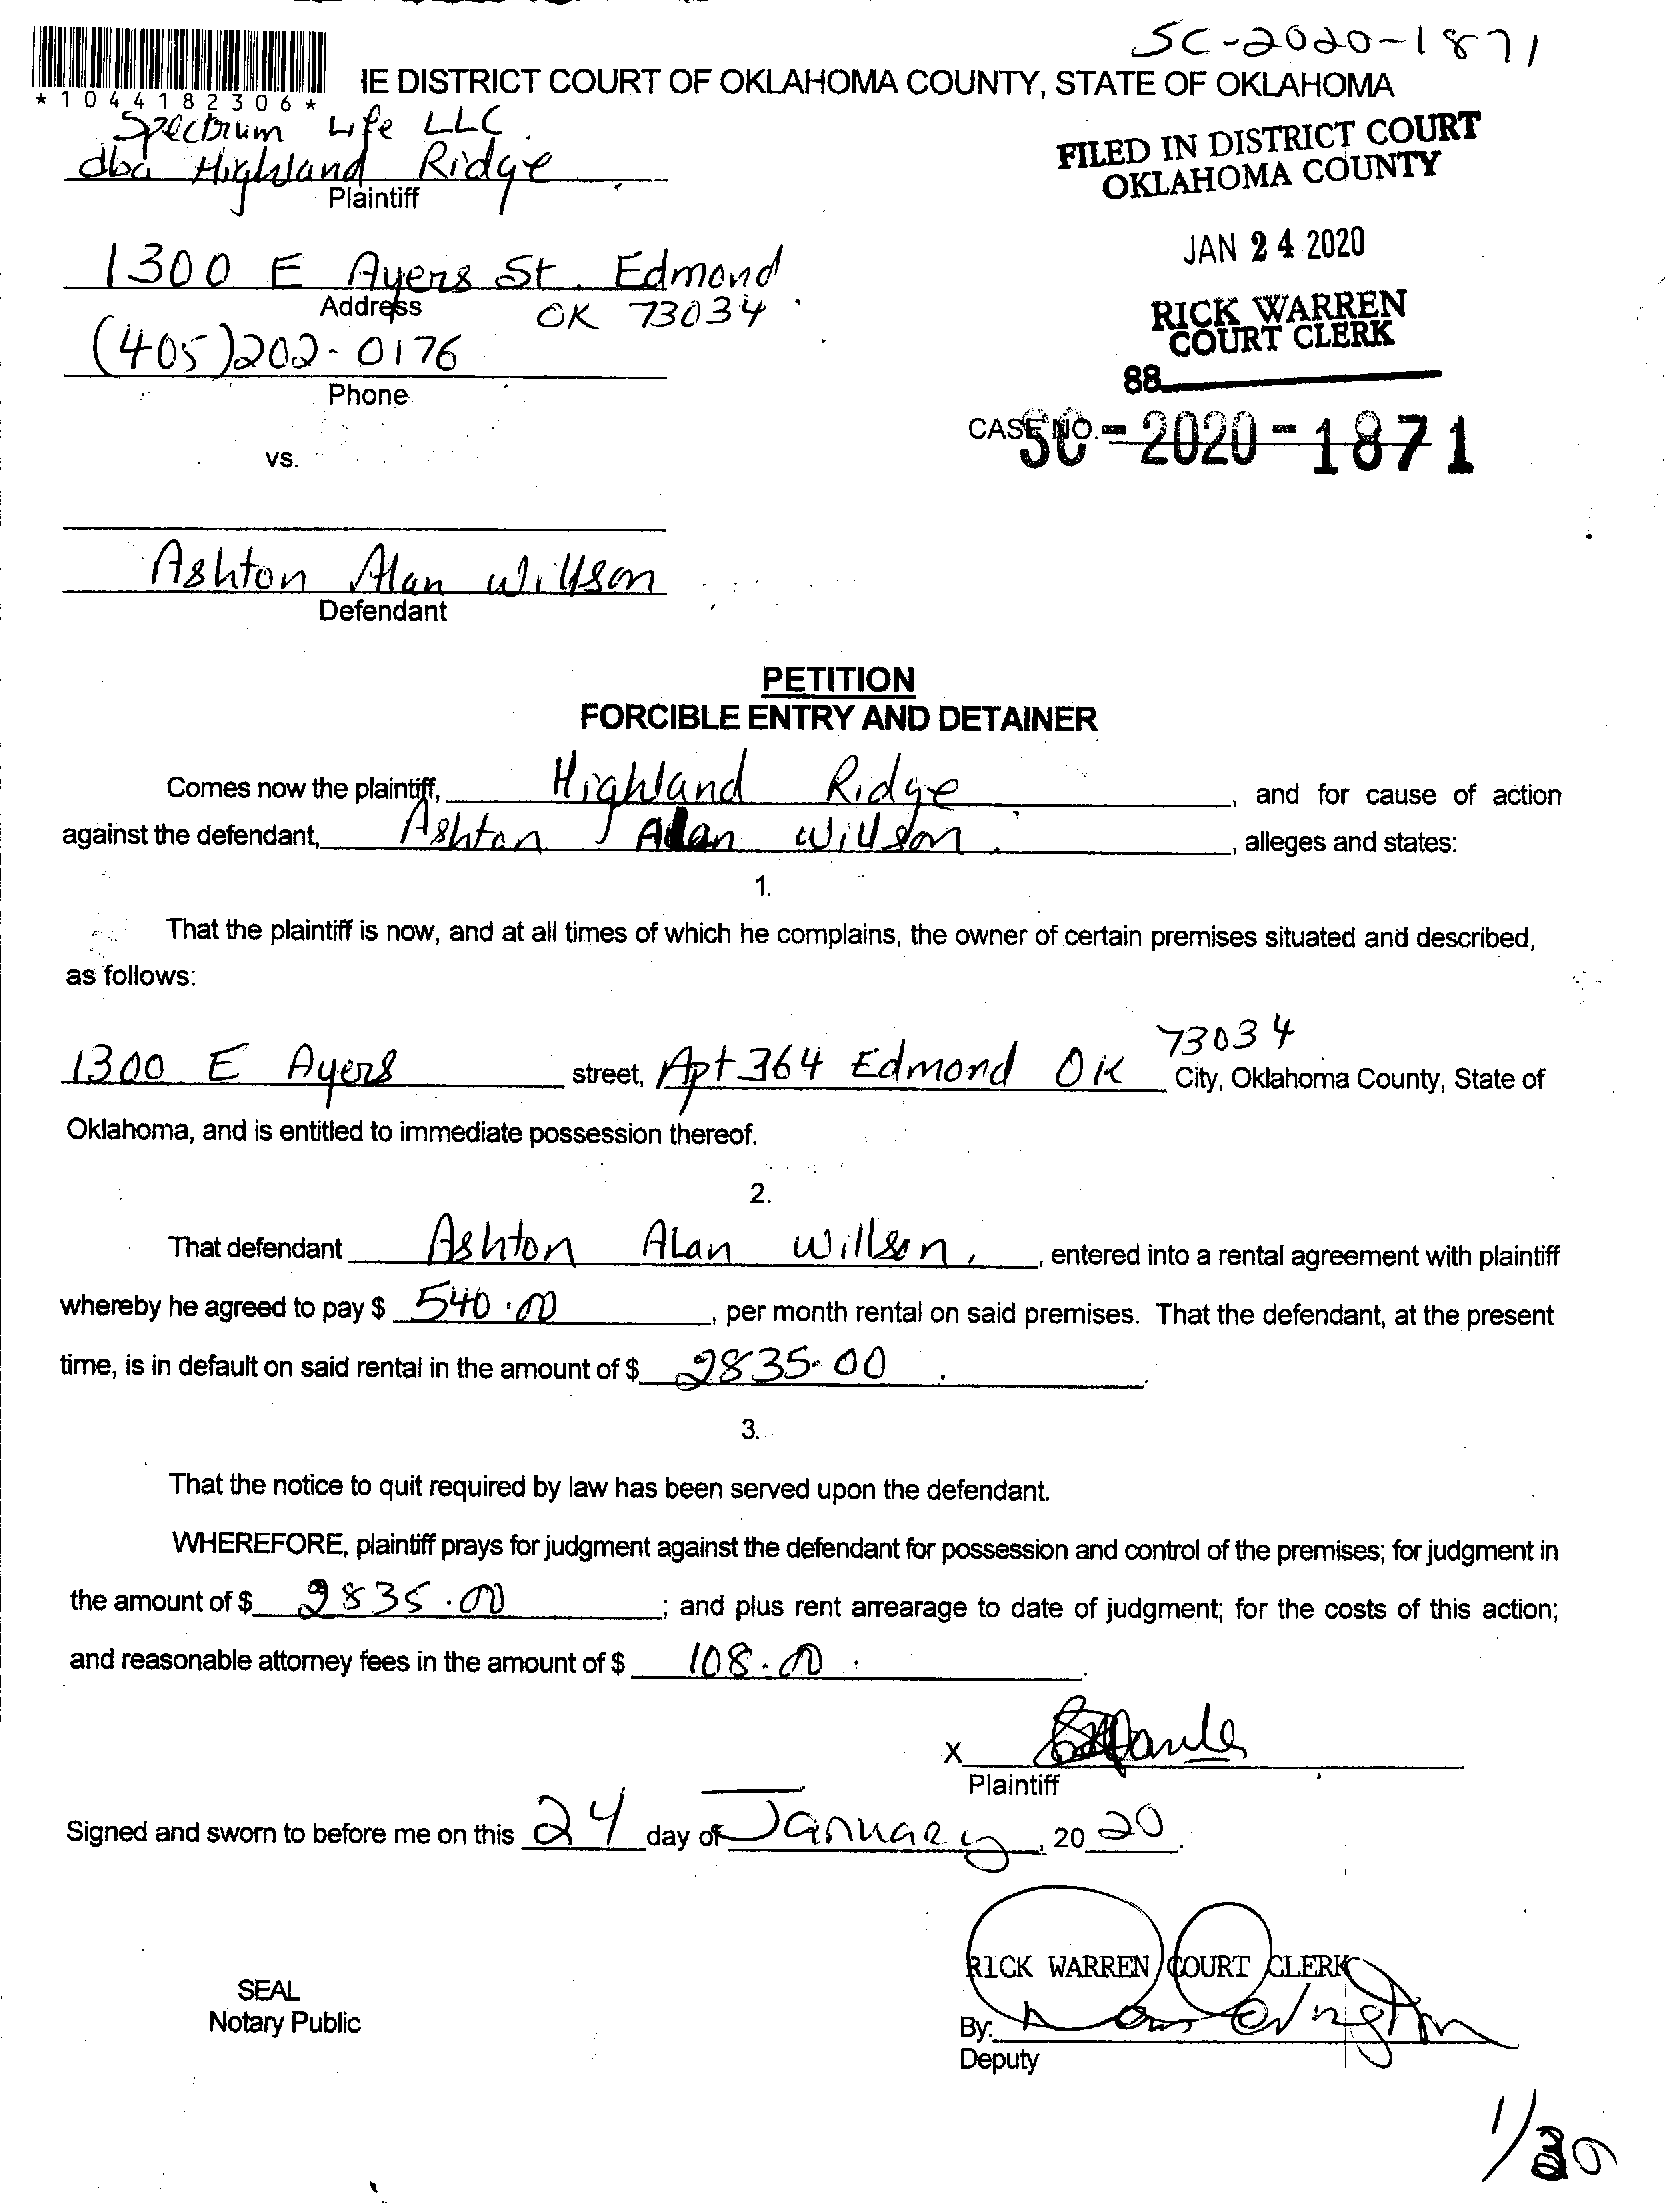 SC-2020-1871
IE DISTRICT COURT OF OKLAHOMA COUNTY, STATE OF OKLAHOMA
*1044182306*
Spectrum Life LLC.
dba Highland Ridge
Plaintiff
FILED IN DISTRICT COURT
OKLAHOMA COUNTY
JAN 24 2020
RICK WARREN
COURT CLERK
88
1300 E Ayers St. Edmond
Address OK 73034
(405)202-0176
Phone
CASE NO. SC-2020-1871
vs.
Ashton Alan Willson
Defendant
PETITION
FORCIBLE ENTRY AND DETAINER
Comes now the plaintiff, Highland Ridge, and for cause of action
against the defendant, Ashton Alan Willson, alleges and states:
1.
That the plaintiff is now, and at all times of which he complains, the owner of certain premises situated and described,
as follows:
1300 E Ayers street, Apt 364 Edmond OK 73034 City, Oklahoma County, State of
Oklahoma, and is entitled to immediate possession thereof.
2.
That defendant Ashton Alan Willson, entered into a rental agreement with plaintiff
whereby he agreed to pay $ 540.00, per month rental on said premises. That the defendant, at the present
time, is in default on said rental in the amount of $ 2835.00.
3.
That the notice to quit required by law has been served upon the defendant.
WHEREFORE, plaintiff prays for judgment against the defendant for possession and control of the premises; for judgment in
the amount of $ 2835.00; and plus rent arrearage to date of judgment; for the costs of this action;
and reasonable attorney fees in the amount of $ 108.00.
X
Plaintiff
Signed and sworn to before me on this 24 day of January, 2020.
RICK WARREN COURT CLERK
SEAL
Notary Public
By:
Deputy